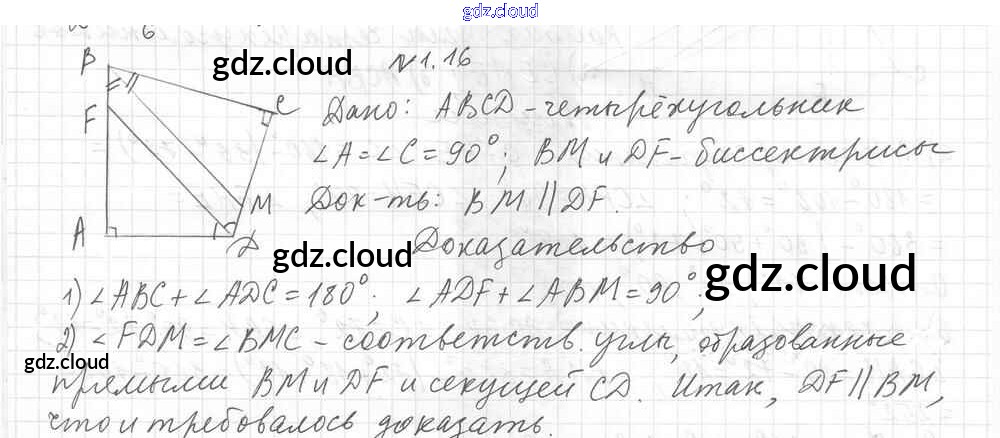 gdz.cloud
6
B
gdz.cloud
N1.16
F
C
Дано: ABCD - четырёхугольник
∠A=∠C=90°; BM и DF - биссектрисы
M
Док-ть: BM || DF.
A
D
gdz.cloud
Доказательство
gdz.cloud
1) ∠ABC+∠ADC=180°; ∠ADF+∠ABM=90°;
2) ∠FDM=∠BMC - соответств. углы, образованные
gdz.cloud
прямыми BM и DF и секущей CD. Итак, DF||BM,
что и требовалось доказать.